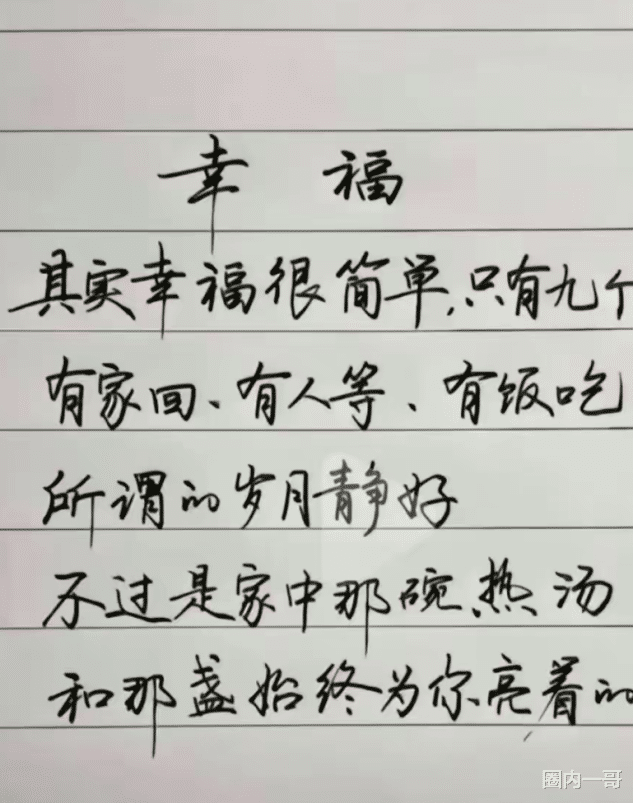 幸 福
其实幸福很简单,只有九个
有家回、有人等、有饭吃
所谓的岁月静好
不过是家中那碗热汤
和那盏始终为你亮着的
圈内一哥